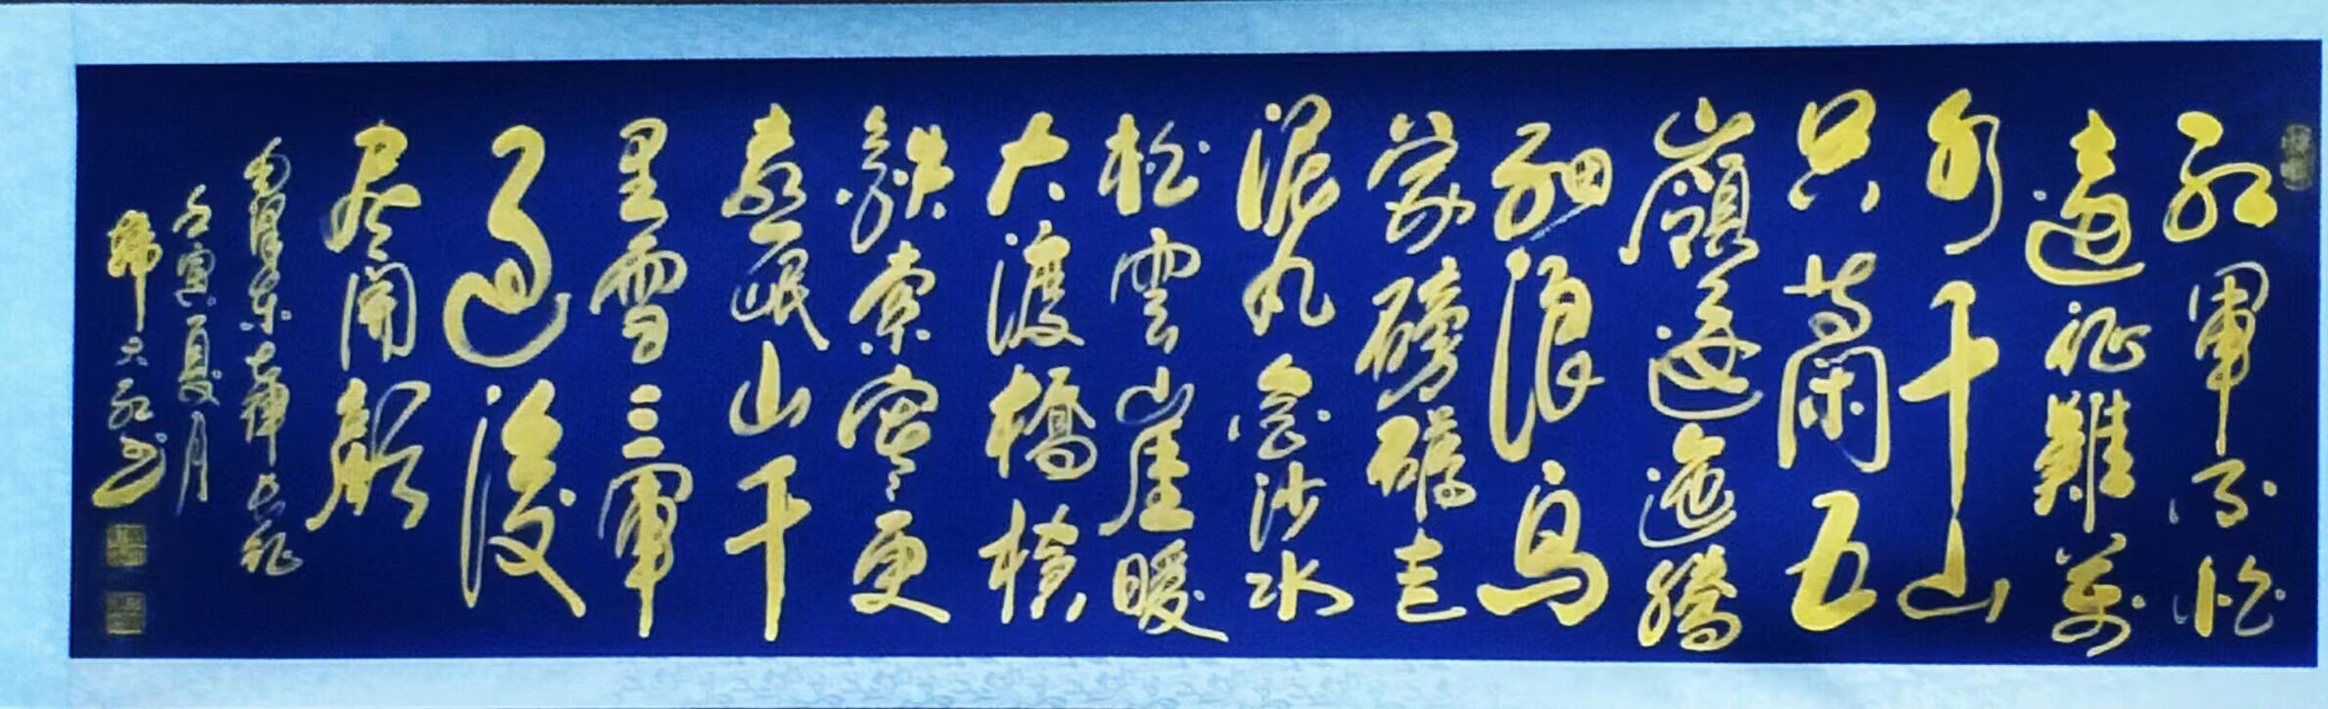 红軍不怕
遠征難萬
水千山
只等閑五
嶺逶迤騰
細浪烏
蒙磅礴走
泥丸金沙水
拍雲崖暖
大渡橋横
鐵索寒更
喜岷山千
里雪三軍
過後
尽開顏
毛澤東七律長征
壬寅夏月